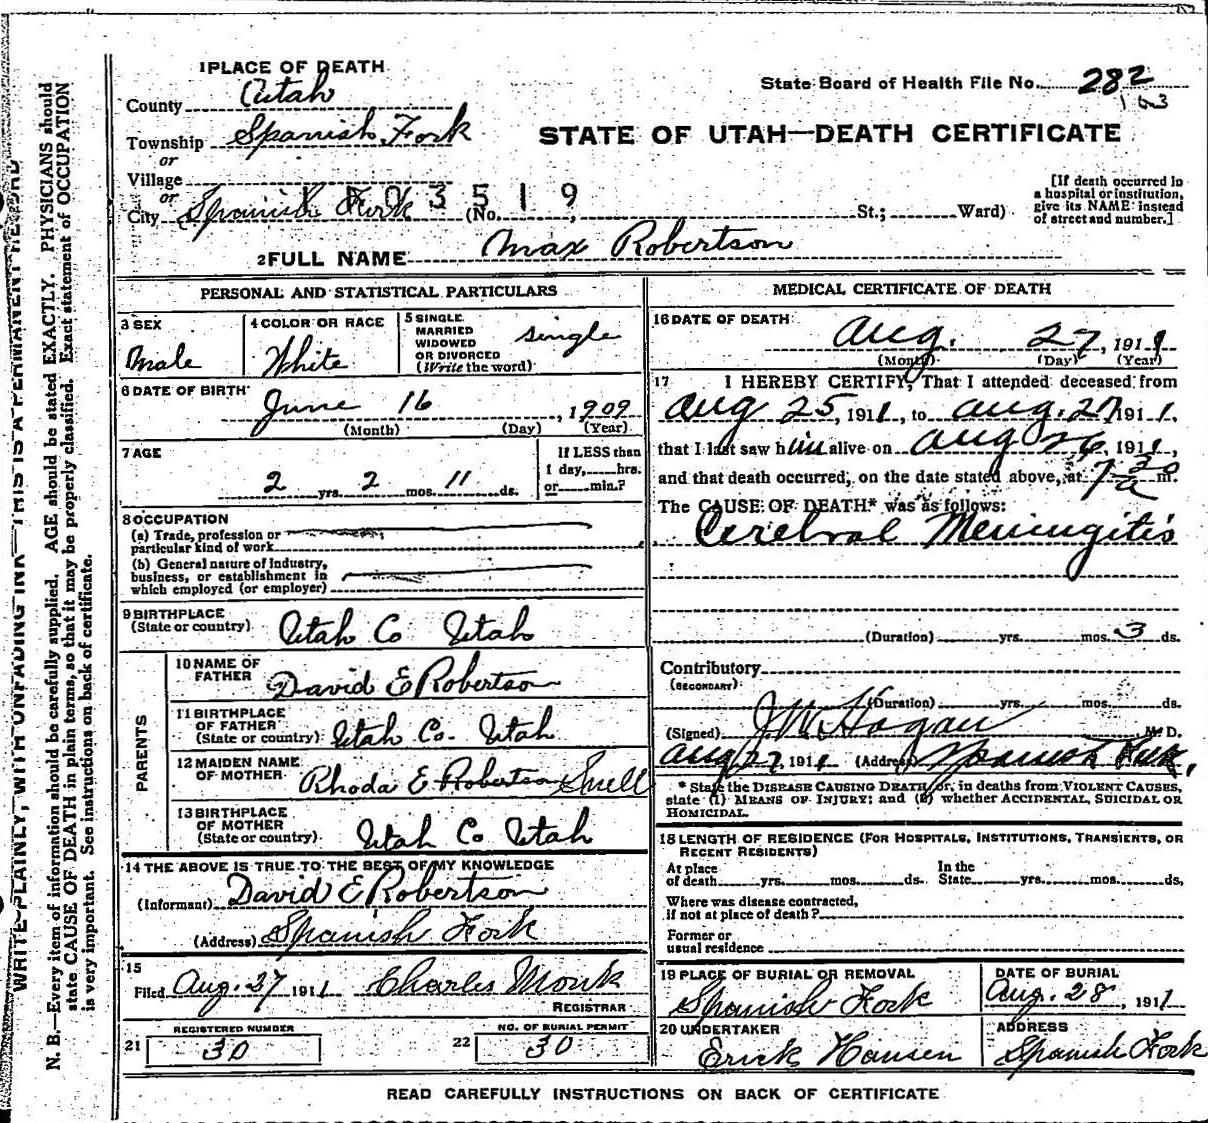 1 PLACE OF DEATH
County Utah
State Board of Health File No. 282
163
Township Spanish Fork
STATE OF UTAH—DEATH CERTIFICATE
or
Village
or
3519
City Spanish Fork (No. , St.; Ward)
[If death occurred in
a hospital or institution,
give its NAME instead
of street and number.]
2 FULL NAME Max Robertson
PERSONAL AND STATISTICAL PARTICULARS
3 SEX
Male
4 COLOR OR RACE
White
5 SINGLE
MARRIED
WIDOWED
OR DIVORCED
(Write the word)
single
6 DATE OF BIRTH
June 16, 1909
(Month) (Day) (Year)
7 AGE
2 yrs. 2 mos. 11 ds.
If LESS than
1 day, hrs.
or min.?
8 OCCUPATION
(a) Trade, profession or
particular kind of work
(b) General nature of Industry,
business, or establishment in
which employed (or employer)
9 BIRTHPLACE
(State or country) Utah Co Utah
PARENTS
10 NAME OF
FATHER David E Robertson
11 BIRTHPLACE
OF FATHER
(State or country) Utah Co. Utah
12 MAIDEN NAME
OF MOTHER Rhoda E. Robertson Snell
13 BIRTHPLACE
OF MOTHER
(State or country) Utah Co Utah
14 THE ABOVE IS TRUE TO THE BEST OF MY KNOWLEDGE
(Informant) David E Robertson
(Address) Spanish Fork
15
Filed Aug. 27 1911 Charles Monk
REGISTRAR
21 REGISTERED NUMBER
30
22 NO. OF BURIAL PERMIT
30
MEDICAL CERTIFICATE OF DEATH
16 DATE OF DEATH
Aug. 27, 1911
(Month) (Day) (Year)
17 I HEREBY CERTIFY, That I attended deceased from
Aug 25, 1911, to Aug. 27 1911,
that I last saw him alive on Aug 26, 1911,
and that death occurred, on the date stated above, at 7 30 a m.
The CAUSE OF DEATH* was as follows:
Cerebral Meningitis
(Duration) yrs. mos. 3 ds.
Contributory
(SECONDARY)
(Duration) yrs. mos. ds.
(Signed) J W Hogan M. D.
Aug 27, 1911 (Address) Spanish Fork,
* State the DISEASE CAUSING DEATH, or, in deaths from VIOLENT CAUSES,
state (1) MEANS OF INJURY; and (2) whether ACCIDENTAL, SUICIDAL OR
HOMICIDAL.
18 LENGTH OF RESIDENCE (FOR HOSPITALS, INSTITUTIONS, TRANSIENTS, OR
RECENT RESIDENTS)
At place
of death yrs. mos. ds.
In the
State yrs. mos. ds.
Where was disease contracted,
if not at place of death?
Former or
usual residence
19 PLACE OF BURIAL OR REMOVAL
Spanish Fork
DATE OF BURIAL
Aug. 28, 1911
20 UNDERTAKER
Erick Hansen
ADDRESS
Spanish Fork
READ CAREFULLY INSTRUCTIONS ON BACK OF CERTIFICATE
WRITE PLAINLY, WITH UNFADING INK—THIS IS A PERMANENT RECORD
N. B.—Every item of information should be carefully supplied. AGE should be stated EXACTLY. PHYSICIANS should
state CAUSE OF DEATH in plain terms, so that it may be properly classified. Exact statement of OCCUPATION
is very important. See instructions on back of certificate.